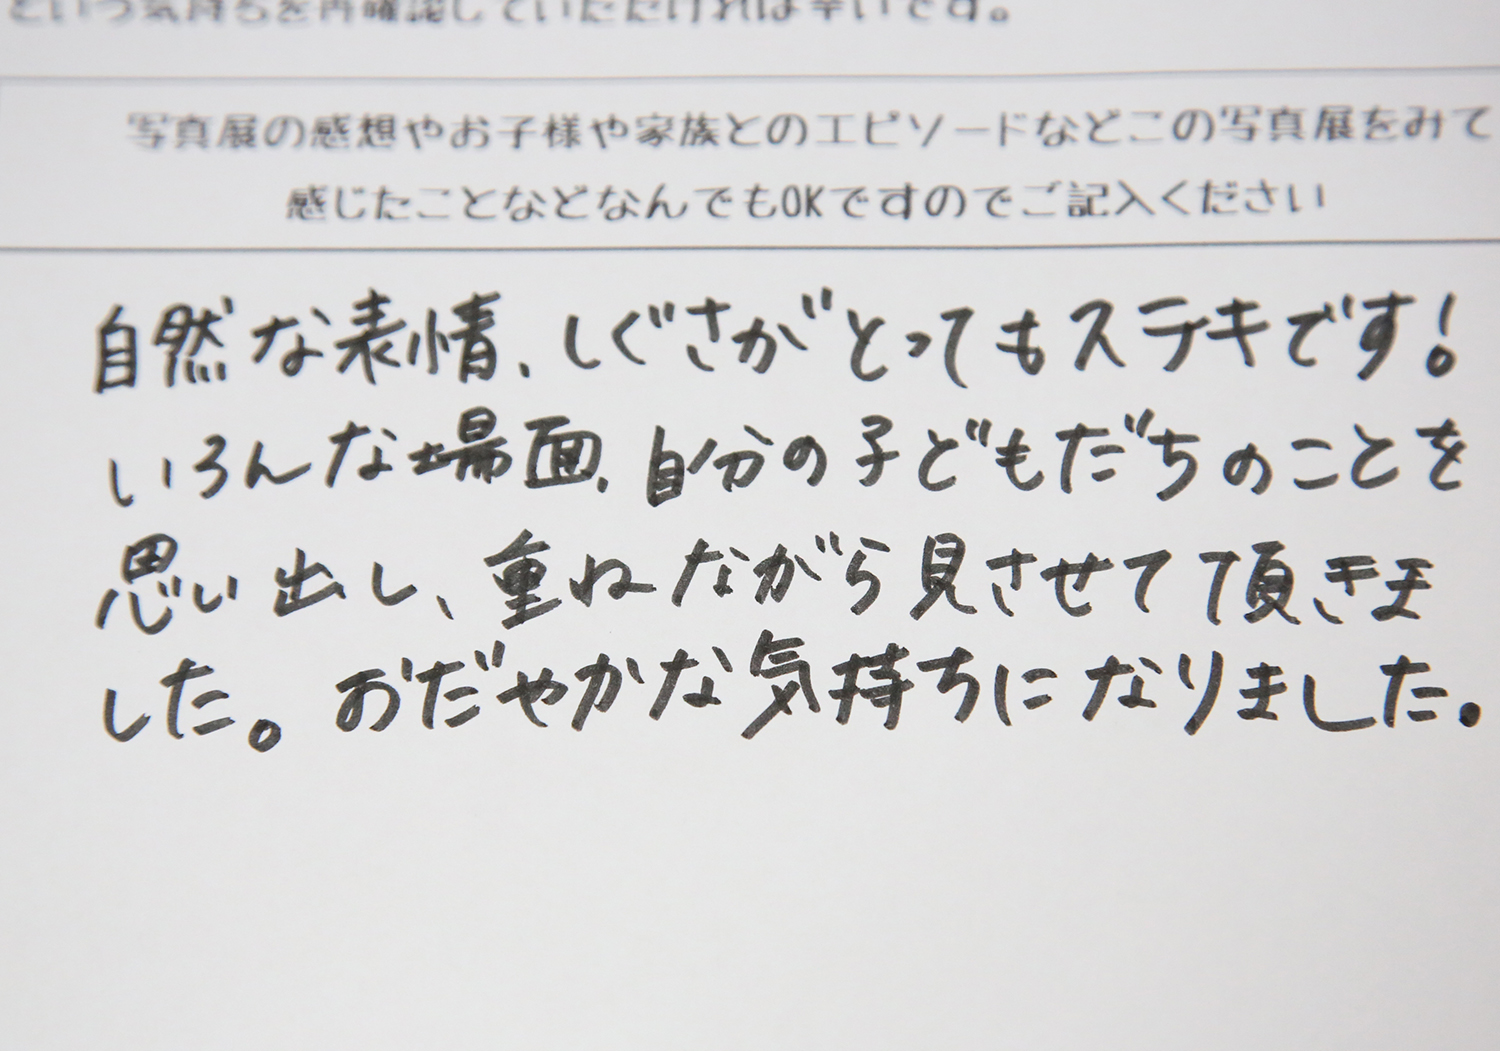 という気持ちを再確認していただければ幸いです。
写真展の感想やお子様や家族とのエピソードなどこの写真展をみて
感じたことなどなんでもOKですのでご記入ください
自然な表情、しぐさがとってもステキです！
いろんな場面、自分の子どもだちのことを
思い出し、重ねながら見させて頂きま
した。おだやかな気持ちになりました。